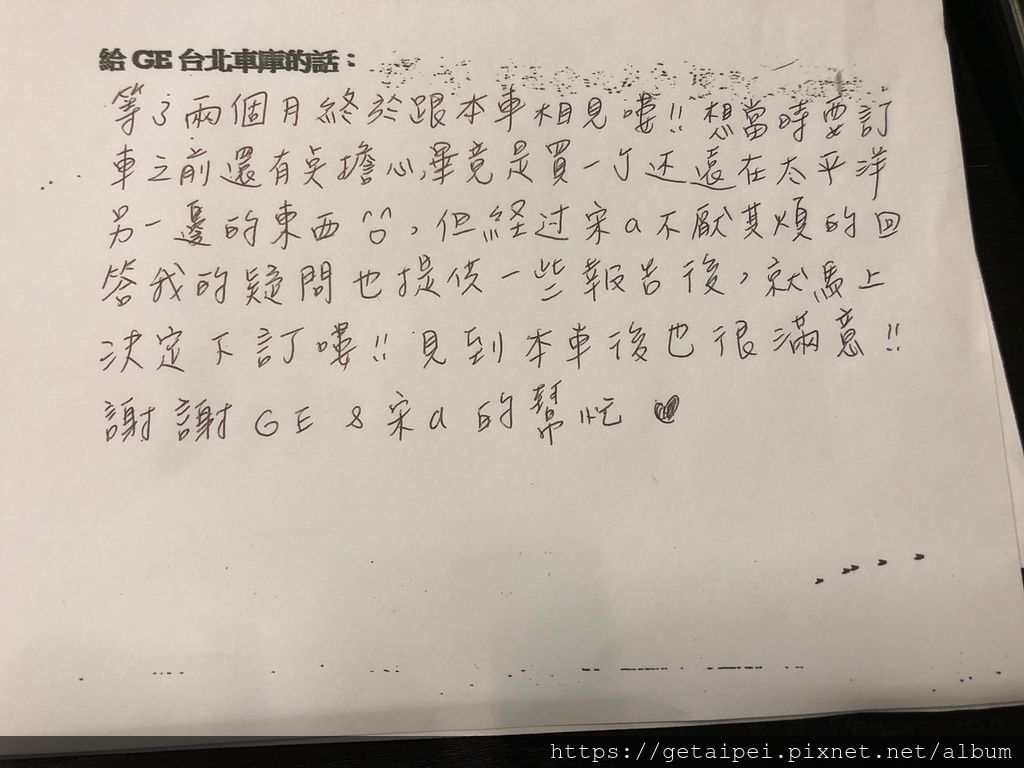 給 GE 台北車庫的話：
等了兩個月終於跟本車相見嘍!! 想當時要訂
車之前還有點擔心，畢竟是買一个还遠在太平洋
另一邊的東西，但経过宋a不厭其煩的回
答我的疑問也提供一些報告後，就馬上
決定下訂嘍!! 見到本車後也很滿意!!
謝謝 GE & 宋a 的幫忙 ♥
https://getaipei.pixnet.net/album